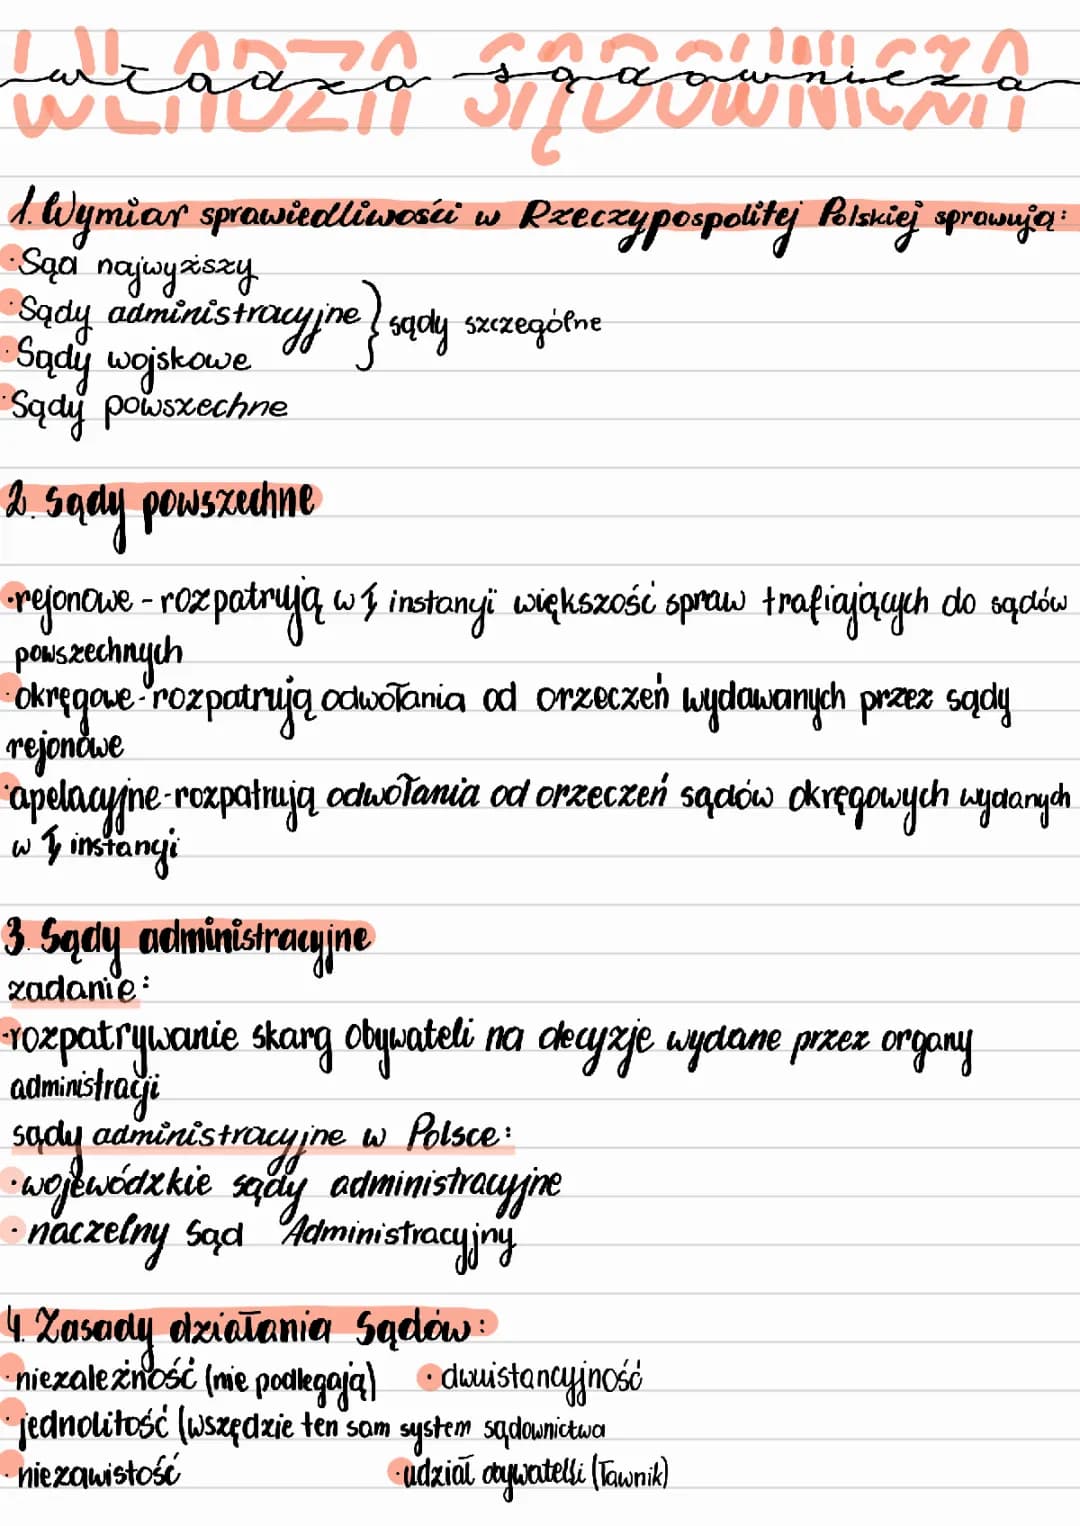 WŁADZA SĄDOWNICZA
władza sądownicza
1. Wymiar sprawiedliwości w Rzeczypospolitej Polskiej sprawują:
·Sąd najwyższy
·Sądy administracyjne } sądy szczególne
·Sądy wojskowe
·Sądy powszechne
2. Sądy powszechne
·rejonowe - rozpatrują w I instancji większość spraw trafiających do sądów
powszechnych
·okręgowe - rozpatrują odwołania od orzeczeń wydawanych przez sądy
rejonowe
·apelacyjne - rozpatrują odwołania od orzeczeń sądów okręgowych wydanych
w I instancji
3. Sądy administracyjne
zadanie:
·rozpatrywanie skarg obywateli na decyzje wydane przez organy
administracji
sądy administracyjne w Polsce:
·wojewódzkie sądy administracyjne
·naczelny Sąd Administracyjny
4. Zasady działania Sądów:
·niezależność (nie podlegają) ·dwuistancyjność
·jednolitość (wszędzie ten sam system sądownictwa
·niezawistość ·udział obywatelski (ławnik)